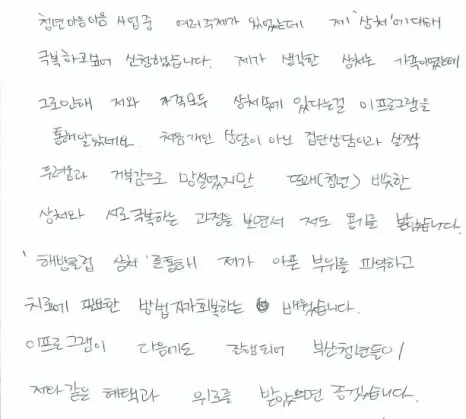 청년마음이음 사업중 여러주제가 있었는데 제 '상처'에대해
극복하고보여 신청했습니다. 제가 생각한 상처는 가족이였는데
그로인해 저와 가족모두 상처속에 있다는걸 이프로그램을
통해알았네요. 처음개인 상담이 아닌 집단상담이라 살짝
두려움과 거부감으로 망설였지만 또래(청년) 비슷한
상처와 서로극복하는 과정을 보면서 저도 용기를 받았습니다.
'해방클럽 상처'를통해 제가 아픈 부위를 파악하고
치료에 필요한 방법 자가회복하는 배웠습니다.
이프로그램이 다음에도 진행되어 부산청년들이
저와같은 혜택과 위로를 받았으면 좋겠습니다.